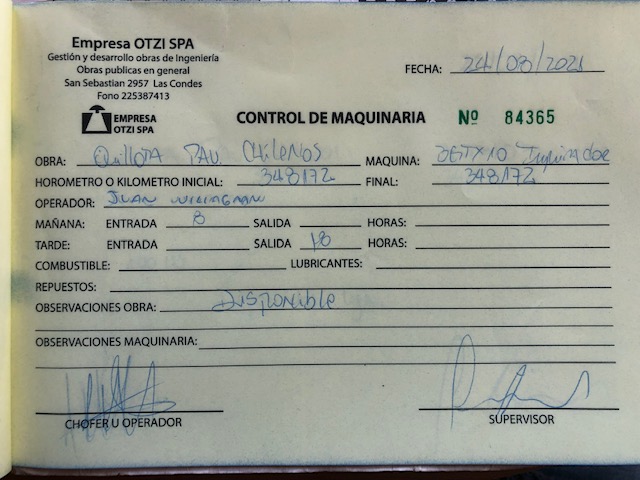 Empresa OTZI SPA
Gestión y desarrollo obras de Ingeniería
Obras publicas en general
San Sebastian 2957 Las Condes
Fono 225387413
FECHA: 24/08/2021
EMPRESA
OTZI SPA
CONTROL DE MAQUINARIA Nº 84365
OBRA: Quillota PAV Chilenos MAQUINA:
HOROMETRO O KILOMETRO INICIAL: 348172 FINAL: 348172
OPERADOR: Juan
MAÑANA: ENTRADA 8 SALIDA HORAS:
TARDE: ENTRADA SALIDA 18 HORAS:
COMBUSTIBLE: LUBRICANTES:
REPUESTOS:
OBSERVACIONES OBRA: Disponible
OBSERVACIONES MAQUINARIA:
CHOFER U OPERADOR SUPERVISOR